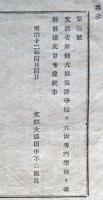 第三號
文部省所轄大阪英語學校ヲ大阪專門學校ト改
稱候條此旨布達候事
明治十二年四月四日
文部大輔田中不二麿